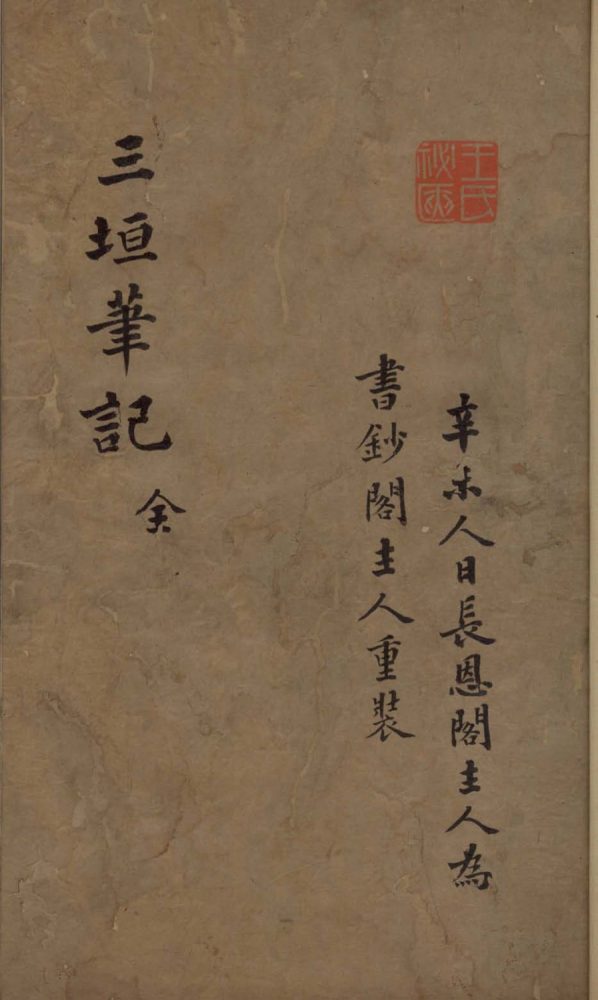 王氏
祕
辛未人日長恩閣主人為
書鈔閣主人重裝
三垣筆記 全